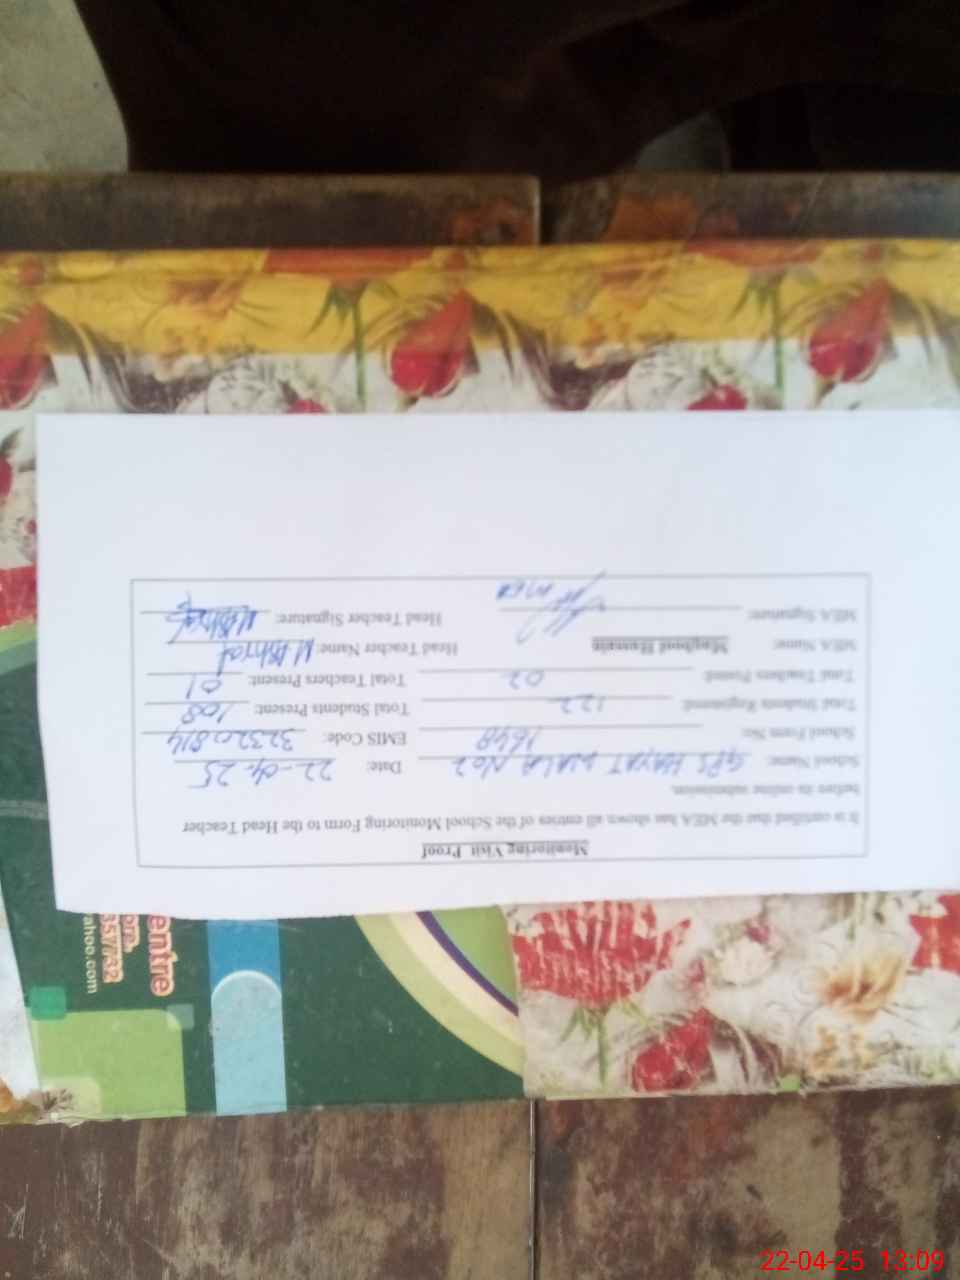 Monitoring Visit Proof
It is certified that the MEA has shown all entries of the School Monitoring Form to the Head Teacher
before its online submission.
School Name: GPS HAYAT WALA No2 Date: 22-04-25
School Form No: 1648 EMIS Code: 32320814
Total Students Registered: 122 Total Students Present: 108
Total Teachers Posted: 02 Total Teachers Present: 01
MEA Name: Maqbool Hussain Head Teacher Name: M Ashraf
MEA Signature: MEA Head Teacher Signature: M Ashraf
entre
357732
ahoo.com
22-04-25 13:09